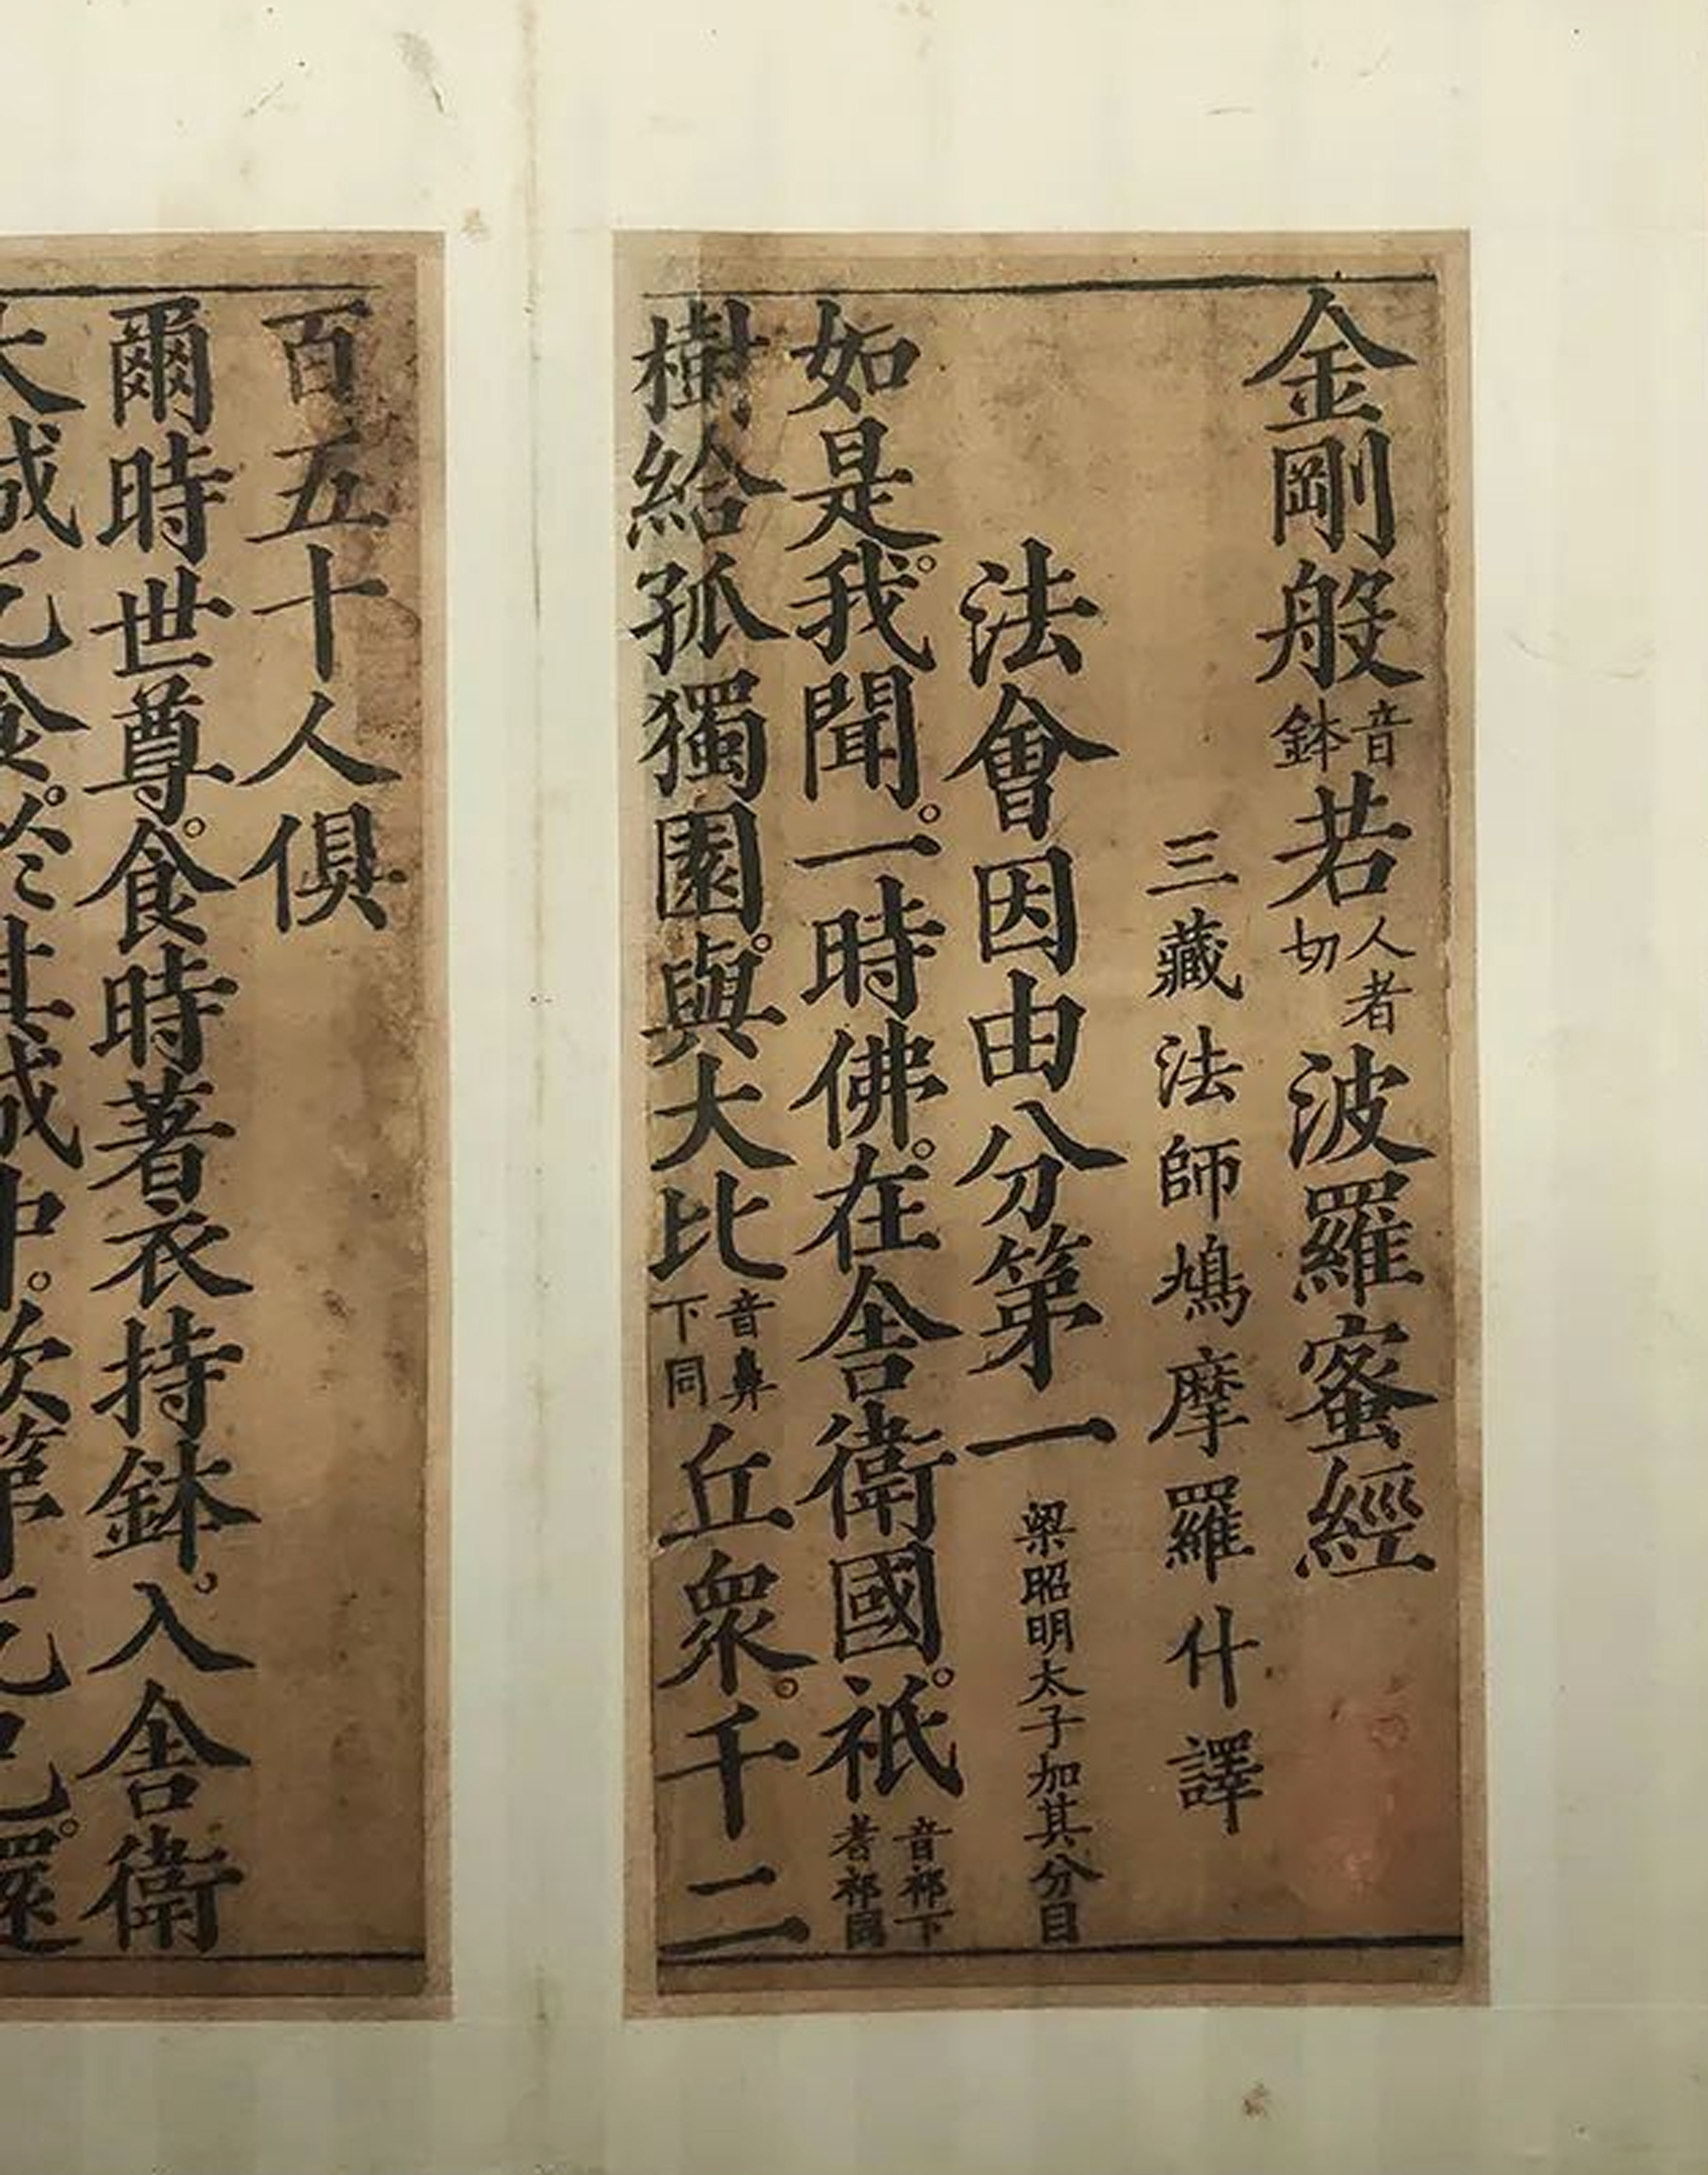 金剛般音鉢若人者切波羅蜜經
三藏法師鳩摩羅什譯
法會因由分第一梁昭明太子加其分目
如是。我聞。一時佛。在舍衛國。祇音祁下者祁同
樹給孤獨園。與大比音鼻下同丘衆。千二
百五十人俱
爾時世尊。食時著衣持鉢。入舍衛
大城乞食。於其城中。次第乞已。還